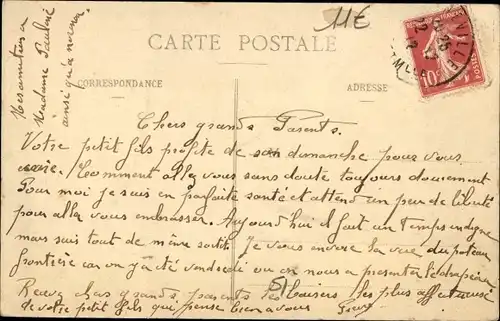 11€
CARTE POSTALE
CORRESPONDANCE
ADRESSE
Mes amitiés a
Madame Pauline
ainsi qu'a
VILLE
10c
Chers grands Parents.
Votre petit fils profite de son dimanche pour vous
écrire. Comment allez vous sans doute toujours doucement
Pour moi je suis en parfaite santé et attend un peu de liberté
pour aller vous embrasser. Aujourd'hui il fait un temps indigne
mais suis tout de même sorti. Je vous envoie la vue du poteau
frontière car on y a été vendredi ou on nous a presenter le drapeau
Recevez chers grands parents les baisers les plus affectueux
de votre petit fils qui pense bien a vous
51